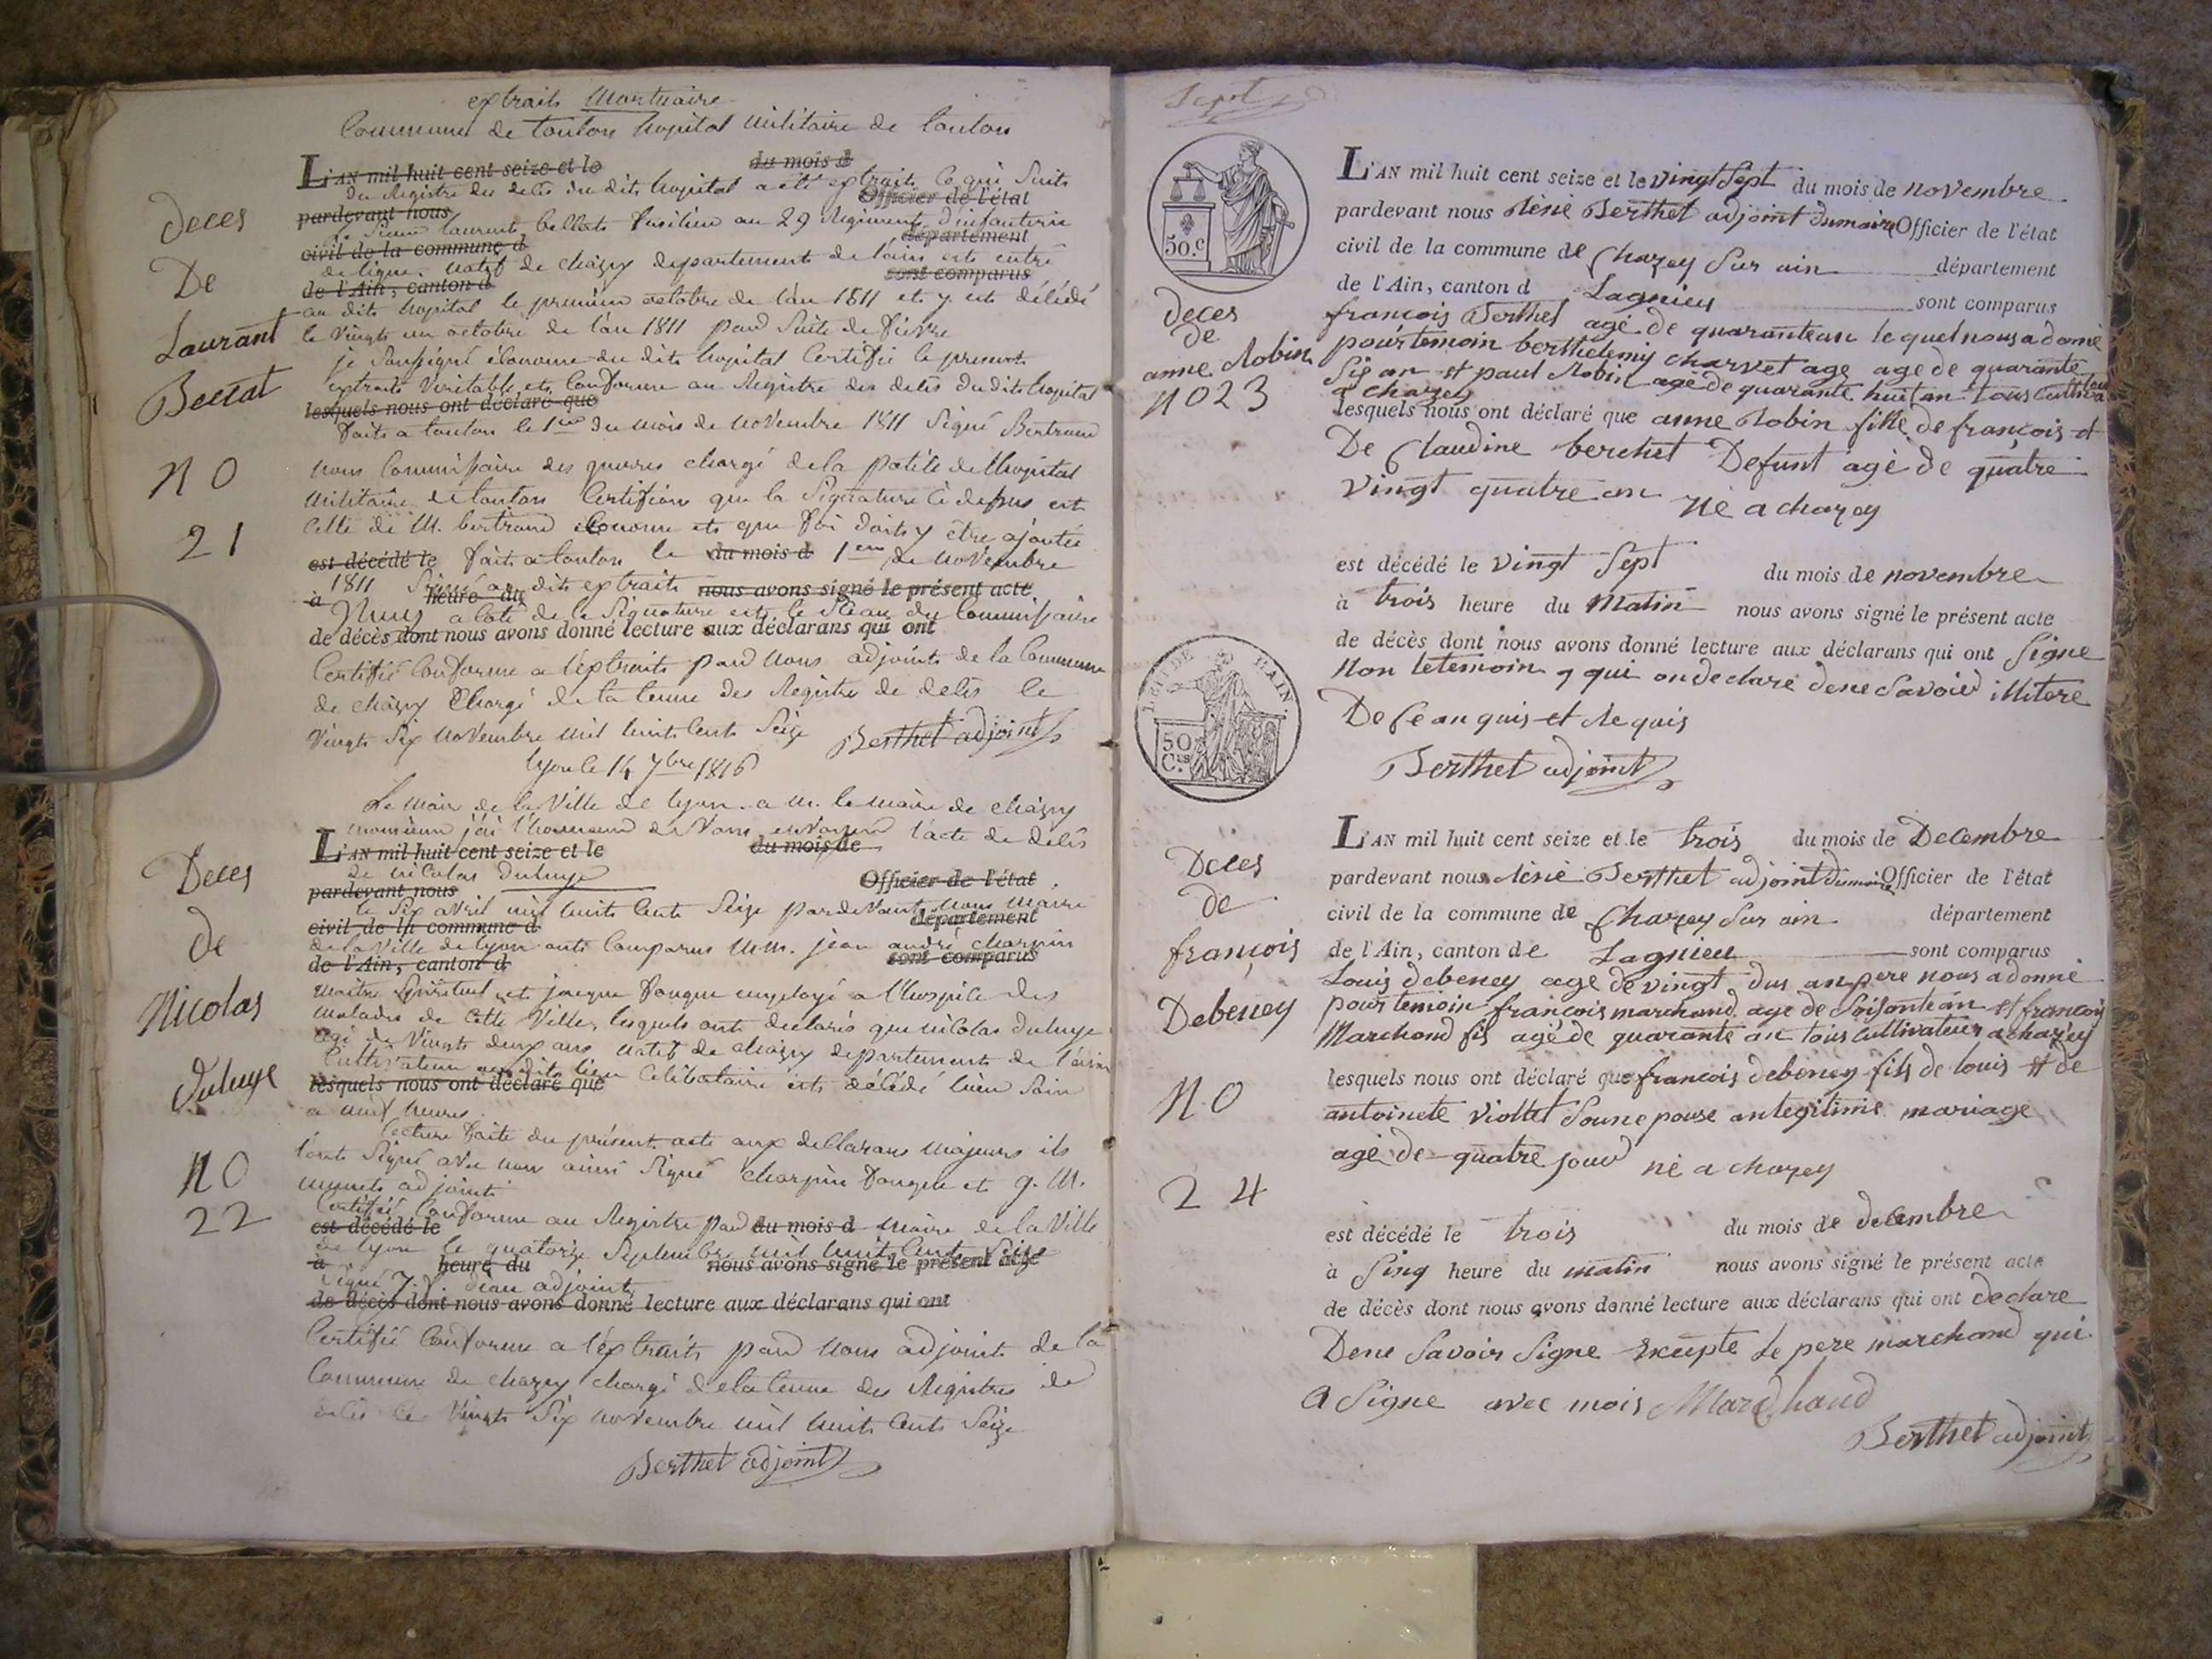 extraits Mortuaire
Commune de toulon hopital militaire de toulon
L'AN mil huit cent seize et le du mois d
du Registre des deces du dits hopital a été extraits ce qui suits
pardevant nous Officier de l'état
le sieur laurents bellats fusilier au 29 Regiments d'infanterie
civil de la commune d département
de ligne natif de chazey departement de lains ets entré
de l'Ain, canton d sont comparus
au dits hopital le premier octobre de l'an 1811 ets y ets délédé
le vingts un octobre de l'an 1811 pard suite de fievre
je soussigné économe du dits hopital Certifie le present
extraits veritable ets conforme au Registre des deces du dits hopital
lesquels nous ont déclaré que
faits a toulon le 1er du mois de novembre 1811 Signé Bertrand
nous Commissaire des guerres chargé de la police de l'hopital
militaire de toulon Certifions que la Signature ci dessus est
celle de M. bertrand économe ets que foi doits y être ajoutée
est décédé le faits a toulon le du mois d 1er de novembre
1811 Signé au dits extraits nous avons signé le présent acte
à heure du
a coté de la Signature ets le Sceau du Commissaire
de décès dont nous avons donné lecture aux déclarans qui ont
Certifié Conforme a l'extraits pard nous adjoints de la Commune
de chazey Chargé de la tenue des Registre de deces le
vingts six novembre mil huits Cents Seize Berthet adjoint
lyon le 14 7bre 1816
Deces
De
Laurant
Beccat
N O
21
Le maire de la ville de lyon a m. le maire de chazey
monsieur j'ai l'honneur de vous envoyer l'acte de deces
L'AN mil huit cent seize et le du mois de
de nicolas duluye
pardevant nous Officier de l'état
le six avril mil huits Cents Seize pardevants nous maire
civil de la commune d département
de la ville de lyon onts Comparus M.M. jean andré charpin
de l'Ain, canton d sont comparus
maitre spirituel et jacque fougue employé a l'hospice des
malades de cette ville, lesquels onts declarés que nicolas duluye
agé de vingts deux ans natif de chazey departements de l'ain
Cultivateur au dits lieu Célibataire ets décédé hier soir
lesquels nous ont déclaré que
a neuf heures
lecture faite du présent acte aux declarans majeurs ils
l'onts Signé avec nous ainsi Signé charpin fougue et g. M.
adjoints
Certifié Conforme au Registre pard du mois d maire de la ville
est décédé le
de lyon le quatorze Septembre mil huit Cents Seize
à heure du nous avons signé le présent acte
Signé adjoints
de décès dont nous avons donné lecture aux déclarans qui ont
Certifié Conforme a l'extraits pard nous adjoints de la
Commune de chazey chargé de la tenue des Registres de
deces le vingts Six novembre mil huits Cents Seize
Berthet adjoint
Deces
de
Nicolas
Duluye
N O
22
Sept
50.C
Deces
de
anne Robin
N O 23
L'AN mil huit cent seize et le vingt Sept du mois de novembre
pardevant nous Réné Berthet adjoint du maire Officier de l'état
civil de la commune de Chazey Sur ain département
de l'Ain, canton d Lagnieu sont comparus
francois Berthet agé de quarante an le quel nous a donné
pour temoin berthelemy charvet age age de quarante
Six an et paul Robin agé de quarante huit an tous cultivateur
a chazey
lesquels nous ont déclaré que anne Robin fille de françois et
De Claudine berchet Defunt agé de quatre
vingt quatre an né a chazey
est décédé le vingt Sept du mois de novembre
à trois heure du Matin nous avons signé le présent acte
de décès dont nous avons donné lecture aux déclarans qui ont Signe
Non le temoin y qui on declaré dene Savoir illitere
De Ce anquis et Requis
Berthet adjoint
50 Cs
Deces
de
françois
Debeney
N O
24
L'AN mil huit cent seize et le trois du mois de Decembre
pardevant nous Réné Berthet adjoint du maire Officier de l'état
civil de la commune de Chazey Sur ain département
de l'Ain, canton de Lagnieu sont comparus
Louis debeney age de vingt dus an pere nous a donné
pour temoin francois marchand age de Soisonte an et francois
Marchand fils agé de quarante an tous Cultivateur a chazey
lesquels nous ont déclaré que francois debeney fils de louis et de
antoinete viollet Soune pouse anlegitime mariage
agé de quatre jour né a chazey
est décédé le trois du mois de decembre
à Sinq heure du matin nous avons signé le présent acte
de décès dont nous avons donné lecture aux déclarans qui ont declare
Dene Savoir Signe Excepte le pere marchand qui
a Signe avec mois Marchand
Berthet adjoint